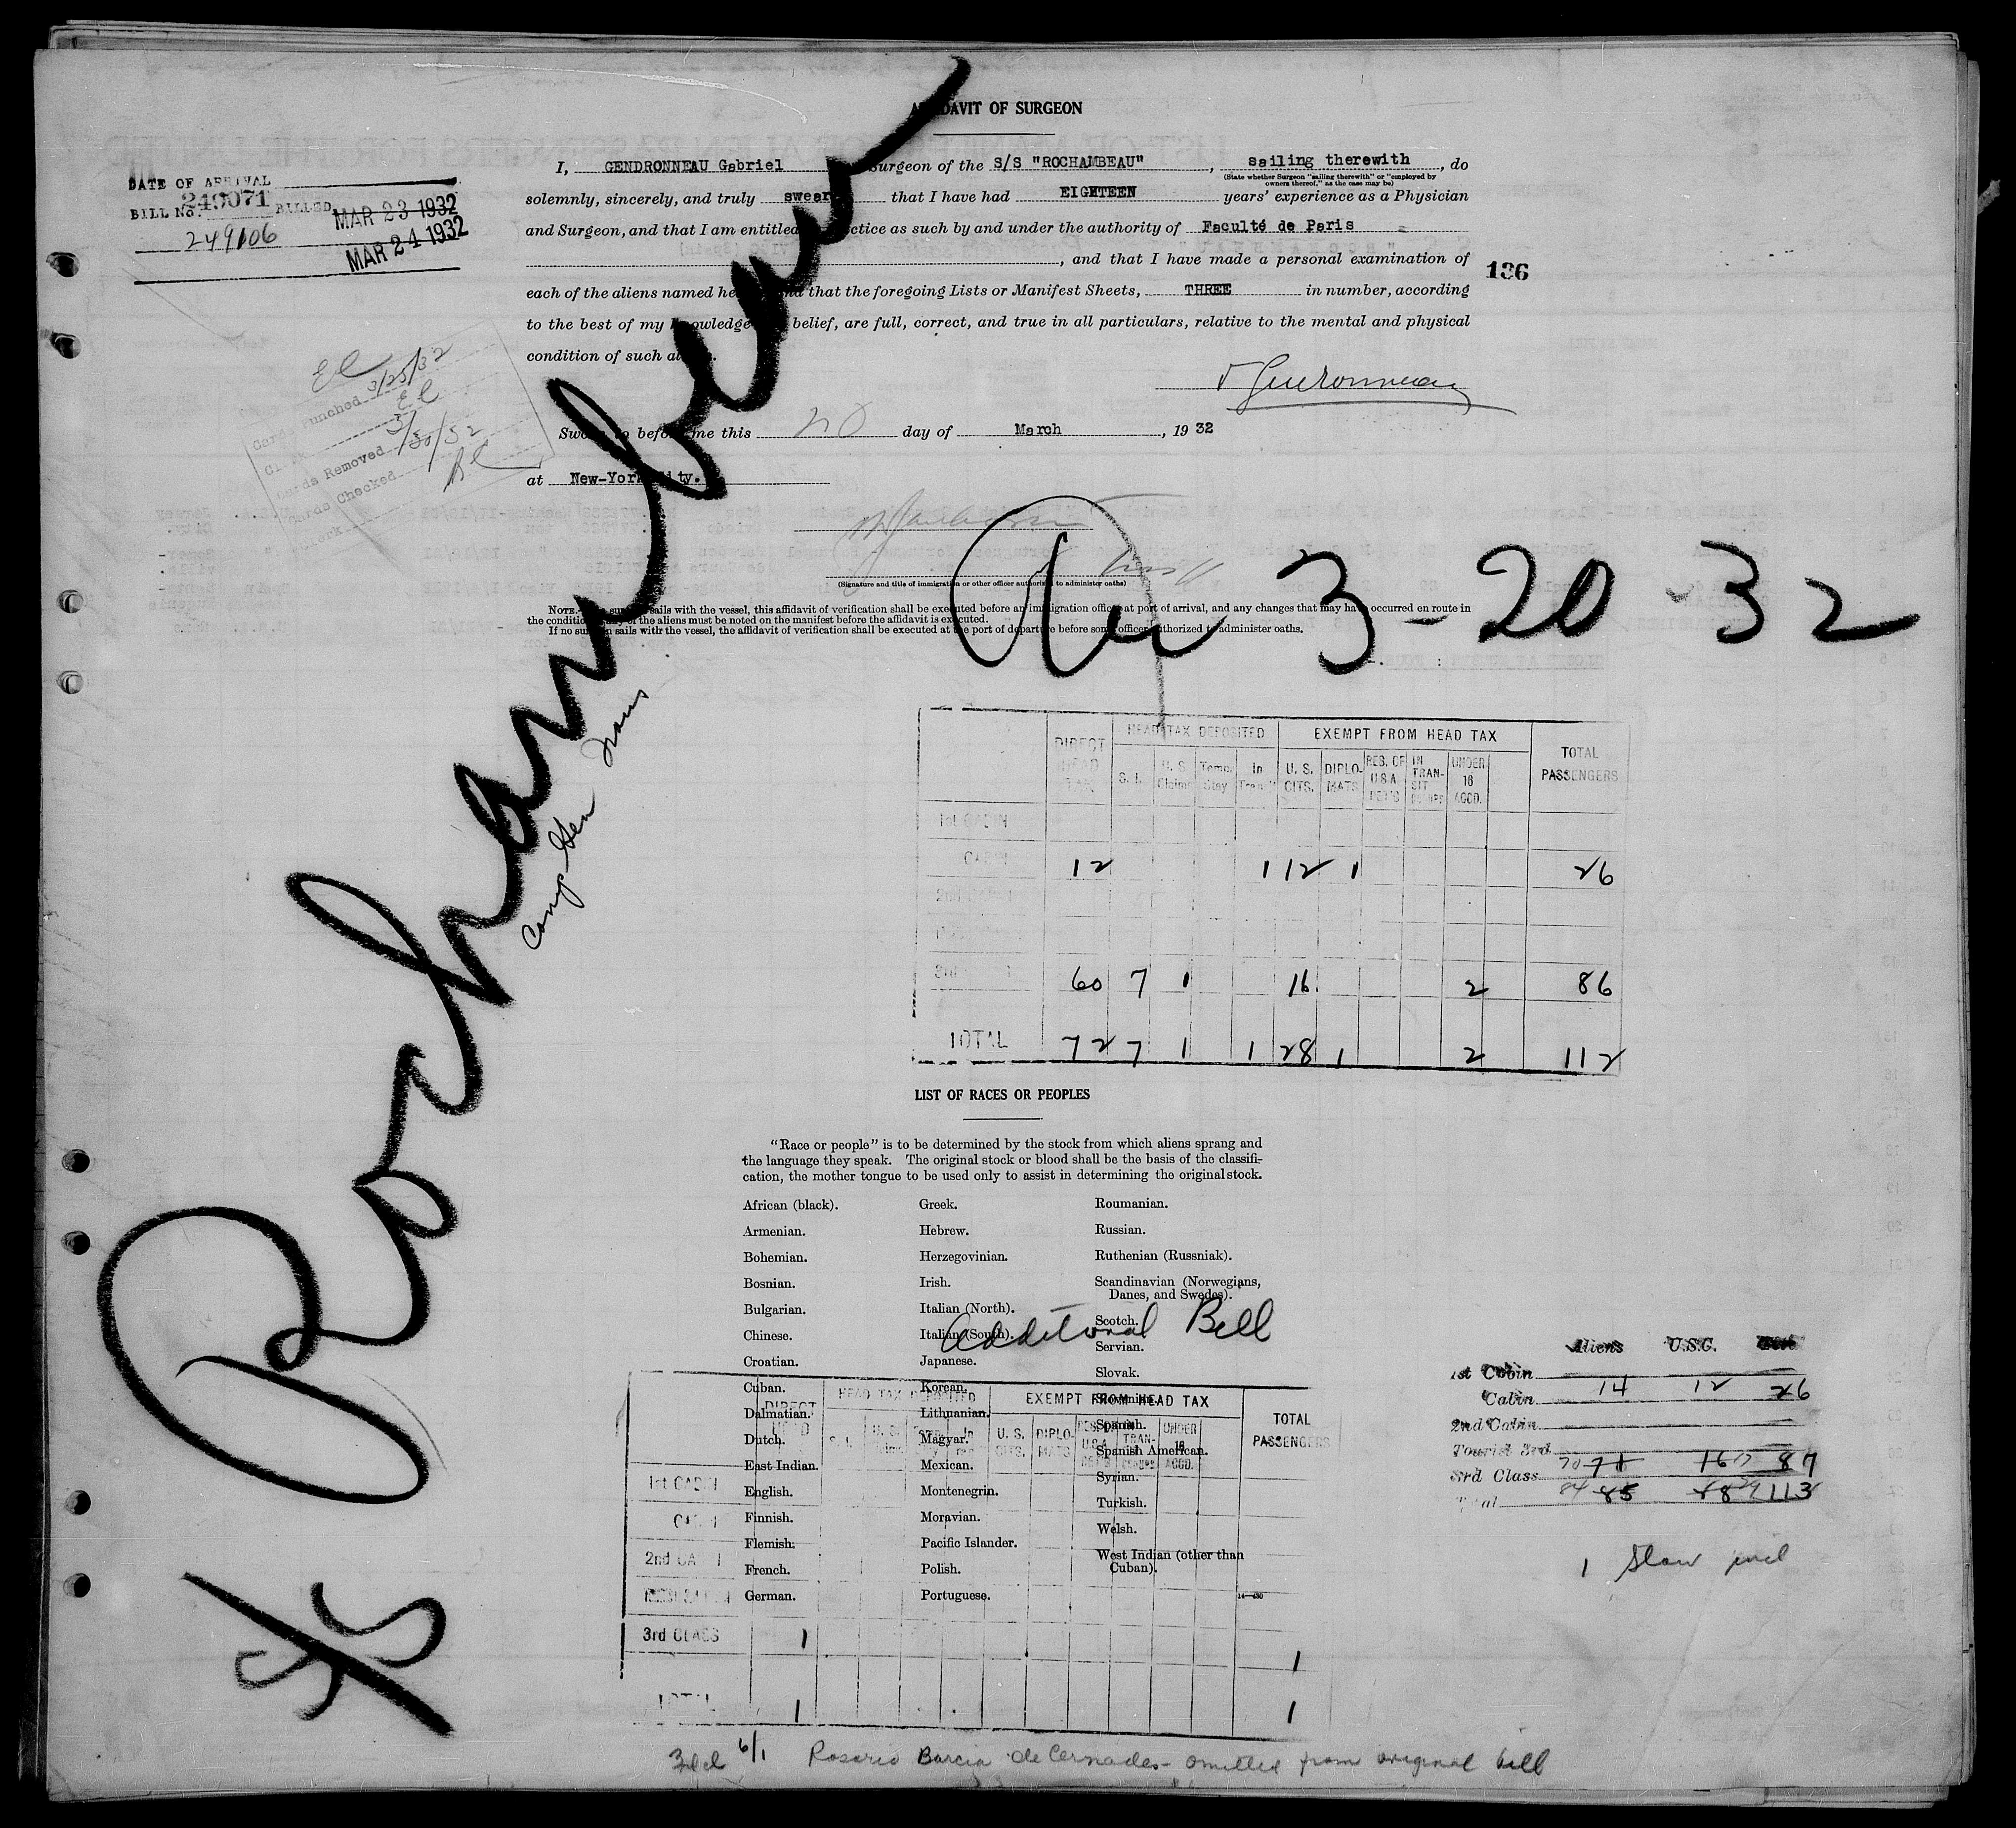 AFFIDAVIT OF SURGEON
I, GENDRONNEAU Gabriel Surgeon of the S/S "ROCHAMBEAU", sailing therewith, do
(State whether Surgeon "sailing therewith" or "employed by owners thereof," as the case may be)
solemnly, sincerely, and truly swear that I have had EIGHTEEN years' experience as a Physician
and Surgeon, and that I am entitled practice as such by and under the authority of Faculté de Paris
, and that I have made a personal examination of
each of the aliens named herein and that the foregoing Lists or Manifest Sheets, THREE in number, according
to the best of my knowledge belief, are full, correct, and true in all particulars, relative to the mental and physical
condition of such aliens.
DATE OF ARRIVAL
BILL No. 249071 BILLED MAR 23 1932
249106 MAR 24 1932
136
El
Cards Punched 3/25/32
Clerk El
Cards Removed 3/30/32
Cards Checked
Clerk
Sworn to before me this 20 day of March, 1932
at New-York City.
(Signature and title of immigration or other officer authorized to administer oaths)
NOTE.—If a surgeon sails with the vessel, this affidavit of verification shall be executed before an immigration officer at port of arrival, and any changes that may have occurred en route in
the condition of any of the aliens must be noted on the manifest before the affidavit is executed.
If no surgeon sails with the vessel, the affidavit of verification shall be executed at the port of departure before some officer authorized to administer oaths.
S/S Rochambeau
Comp Gen Trans
Arr 3-20-32
DIRECT HEAD TAX HEAD TAX DEPOSITED EXEMPT FROM HEAD TAX TOTAL PASSENGERS
S. I. U. S. Claims Temp. Stay In Transit U. S. CITS. DIPLOMATS RES. OF U.S.A. IN TRANSIT UNDER 16 ACCD.
1st CABIN
CABIN 12 1 12 1 26
2nd CABIN
3rd 60 7 1 16 2 86
TOTAL 72 7 1 1 28 1 2 112
LIST OF RACES OR PEOPLES
"Race or people" is to be determined by the stock from which aliens sprang and
the language they speak. The original stock or blood shall be the basis of the classifi-
cation, the mother tongue to be used only to assist in determining the original stock.
African (black).
Armenian.
Bohemian.
Bosnian.
Bulgarian.
Chinese.
Croatian.
Cuban.
Dalmatian.
Dutch.
East Indian.
English.
Finnish.
Flemish.
French.
German.
Greek.
Hebrew.
Herzegovinian.
Irish.
Italian (North).
Italian (South).
Japanese.
Korean.
Lithuanian.
Magyar.
Mexican.
Montenegrin.
Moravian.
Pacific Islander.
Polish.
Portuguese.
Roumanian.
Russian.
Ruthenian (Russniak).
Scandinavian (Norwegians,
Danes, and Swedes).
Scotch.
Servian.
Slovak.
Slovenian.
Spanish.
Spanish American.
Syrian.
Turkish.
Welsh.
West Indian (other than
Cuban).
14—430
Additional Bill
DIRECT HEAD HEAD TAX DEPOSITED EXEMPT FROM HEAD TAX TOTAL PASSENGERS
S. I. U. S. In U. S. CITS. DIPLOMATS U.S.A. TRAN- UNDER 16 ACCD.
1st CABIN
CABIN
2nd CABIN
3rd CLASS 1
1
TOTAL 1 1
Aliens U.S.C.
1st Cabin
Cabin 14 12 26
2nd Cabin
Tourist 3rd
3rd Class 70 71 16 17 87
Total 84 85 28 29 113
3rd cl 6/1 Rosario Barcia de Cernadas - omitted from original bill